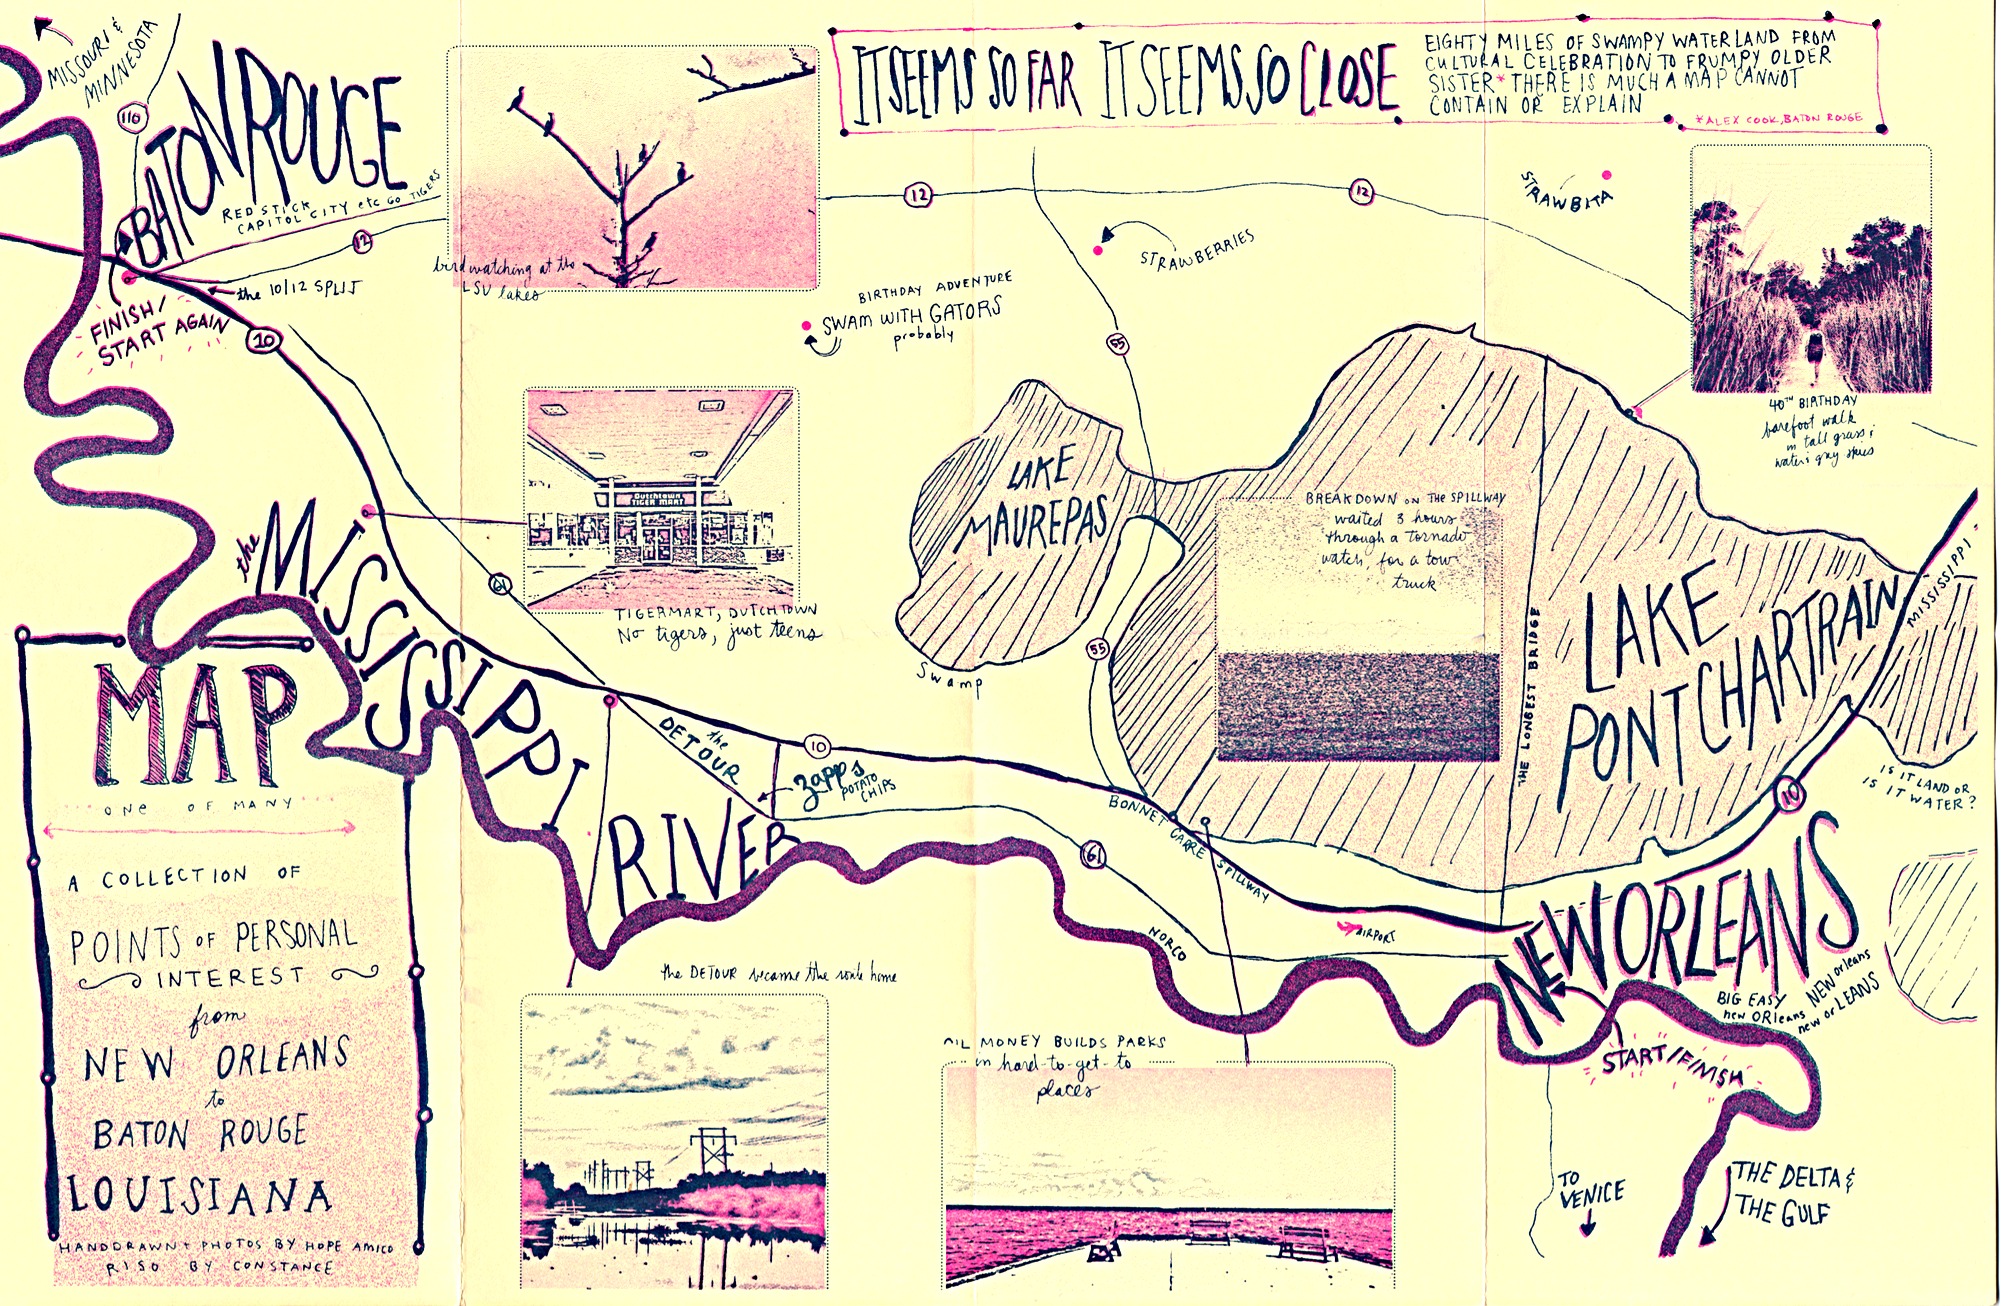 MISSOURI &
MINNESOTA
110
BATON ROUGE
RED STICK
CAPITOL CITY etc GO TIGERS
12
the 10/12 SPLIT
FINISH/
START AGAIN
10
birdwatching at the
LSU lakes
IT SEEMS SO FAR IT SEEMS SO CLOSE
EIGHTY MILES OF SWAMPY WATERLAND FROM
CULTURAL CELEBRATION TO FRUMPY OLDER
SISTER* THERE IS MUCH A MAP CANNOT
CONTAIN OR EXPLAIN
*ALEX COOK, BATON ROUGE
12
12
STRAWBITA
STRAWBERRIES
BIRTHDAY ADVENTURE
SWAM WITH GATORS
probably
55
40TH BIRTHDAY
barefoot walk
in tall grass &
water & gray skies
Dutchtown
TIGER MART
TIGERMART, DUTCHTOWN
No tigers, just teens
61
LAKE
MAUREPAS
Swamp
55
BREAKDOWN ON THE SPILLWAY
waited 3 hours
through a tornado
watch, for a tow
truck
THE LONGEST BRIDGE
LAKE
PONTCHARTRAIN
MISSISSIPPI
IS IT LAND OR
IS IT WATER?
10
the MISSISSIPPI RIVER
the
DETOUR
10
Zapp's
POTATO
CHIPS
BONNET CARRE SPILLWAY
61
NORCO
AIRPORT
NEW ORLEANS
BIG EASY
new ORleans
NEW orleans
new orLEANS
START/FINISH
TO
VENICE
THE DELTA &
THE GULF
the DETOUR became the route home
OIL MONEY BUILDS PARKS
in hard-to-get-to
places
MAP
ONE OF MANY
A COLLECTION OF
POINTS OF PERSONAL
INTEREST
from
NEW ORLEANS
to
BATON ROUGE
LOUISIANA
HANDDRAWN + PHOTOS BY HOPE AMICO
RISO BY CONSTANCE